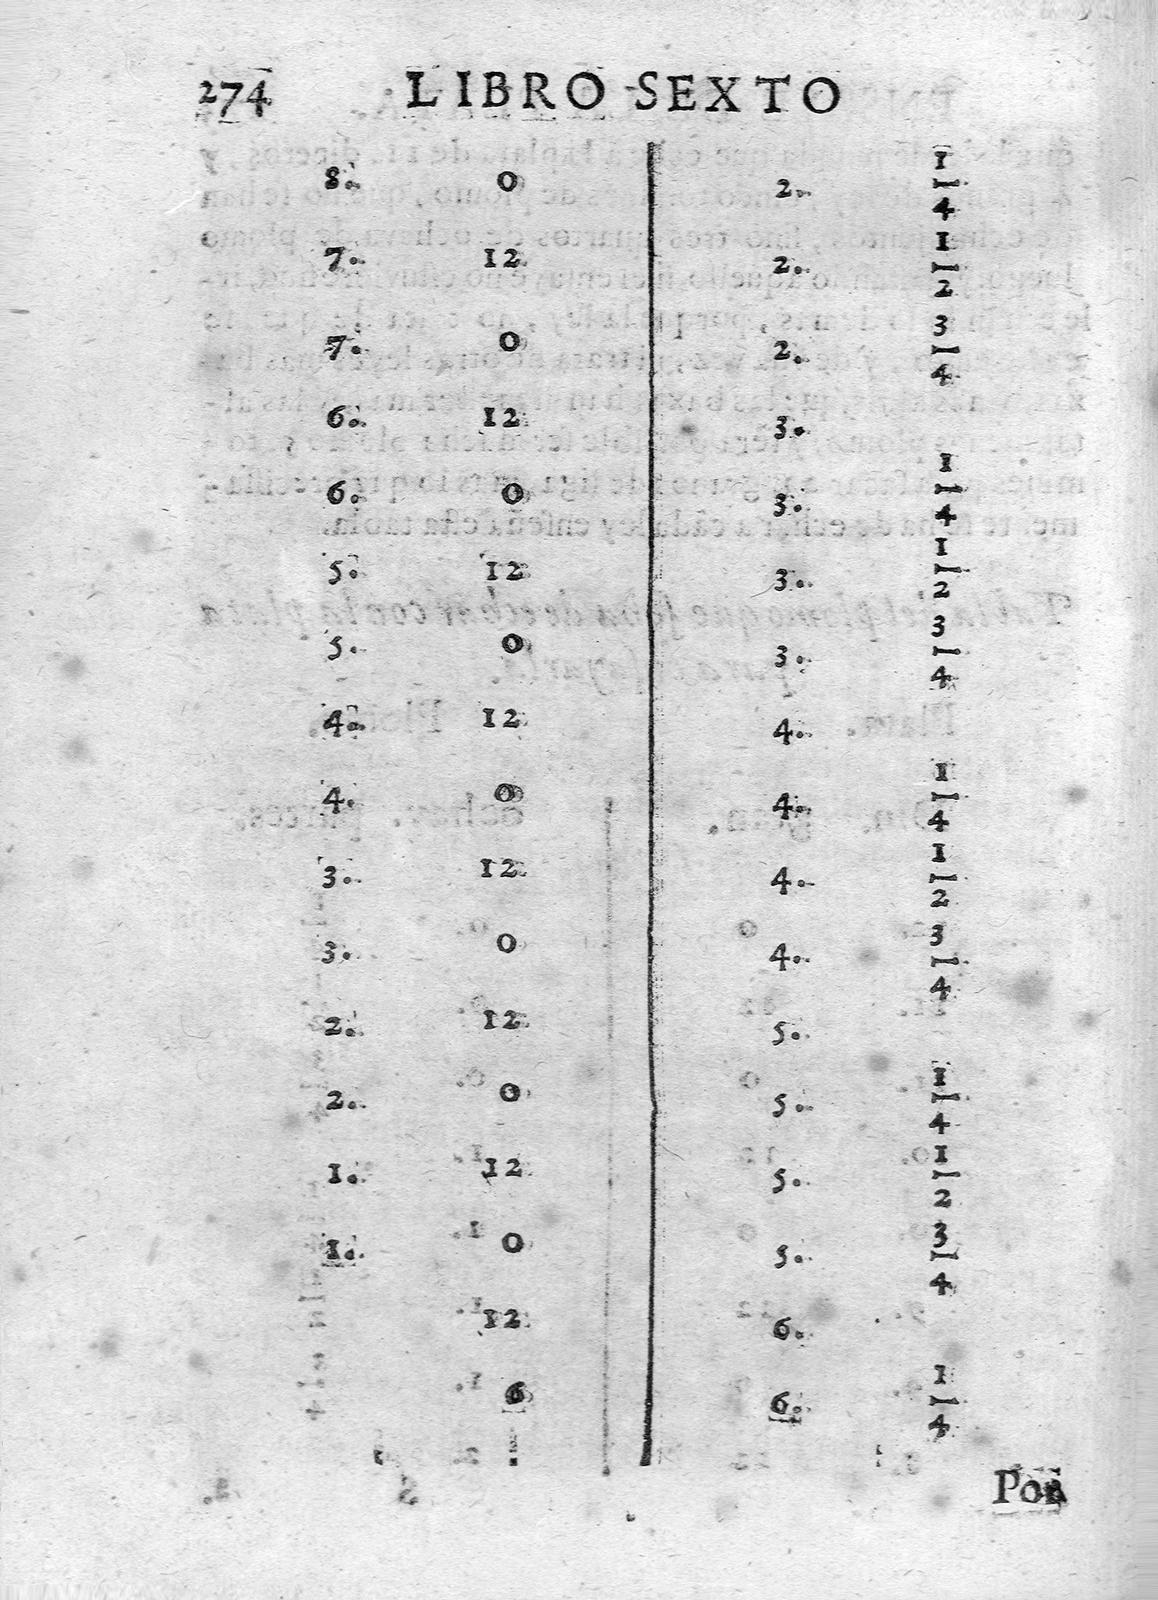 274 LIBRO SEXTO
8. 0 2. 1/4
7. 12 2. 1/2
7. 0 2. 3/4
6. 12 3.
6. 0 3. 1/4
5. 12 3. 1/2
5. 0 3. 3/4
4. 12 4.
4. 0 4. 1/4
3. 12 4. 1/2
3. 0 4. 3/4
2. 12 5.
2. 0 5. 1/4
1. 12 5. 1/2
1. 0 5. 3/4
12 6.
6 6. 1/4
Por